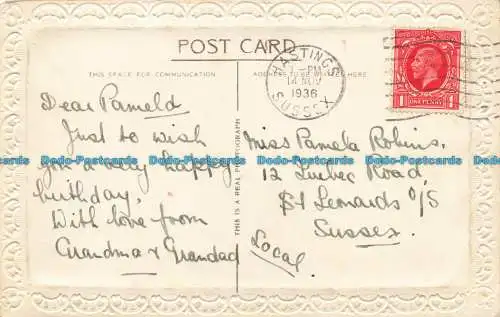 POST CARD
THIS SPACE FOR COMMUNICATION
ADDRESS TO BE WRITTEN HERE
HASTINGS
-PM
14 NOV
1936
SUSSEX
ONE PENNY
Dear Pamela
Just to wish
you a very happy
birthday.
With love from
Grandma & Grandad
THIS IS A REAL PHOTOGRAPH
Miss Pamela Robins.
12 Quebec Road,
St Leonards o/S
Sussex.
Local.
Dodo-Postcards Dodo-Postcards Dodo-Postcards
Dodo-Postcards Dodo-Postcards Dodo-Postcards
Dodo-Postcards Dodo-Postcards Dodo-Postcards